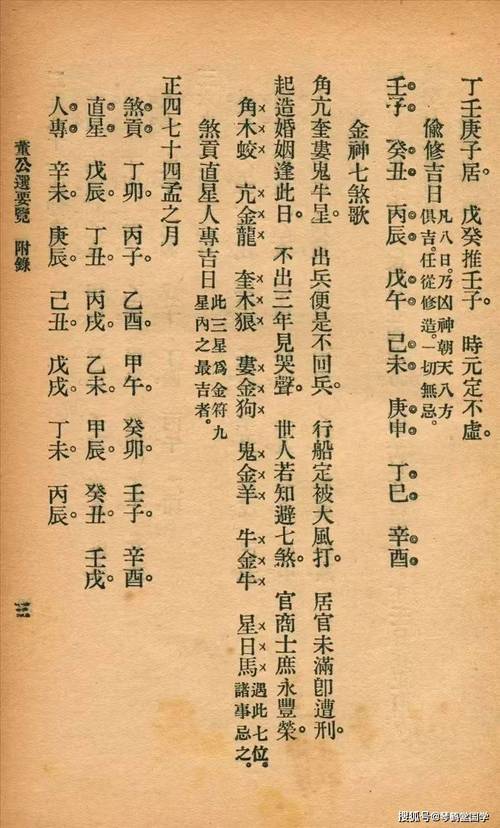 丁壬庚子居。戊癸推壬子。時元定不虛。
偸修吉日 凡八日。乃凶神朝天八方
俱吉。任從修造。一切無忌。
壬子。癸丑。丙辰。戊午。己未。庚申。丁巳。辛酉。
金神七煞歌
角亢奎婁鬼牛星。出兵便是不回兵。行船定被大風打。居官未滿卽遭刑。
起造婚姻逢此日。不出三年見哭聲。世人若知避七煞。官商士庶永豐榮。
角木蛟×亢金龍×奎木狼×婁金狗×鬼金羊×牛金牛×星日馬×遇此七位。
諸事忌之。
煞貢直星人專吉日 此三星爲金符九
星內之最吉者。
正四七十四孟之月
煞貢 丁卯。丙子。乙酉。甲午。癸卯。壬子。辛酉。
直星 戊辰。丁丑。丙戌。乙未。甲辰。癸丑。壬戌。
人專 辛未。庚辰。己丑。戊戌。丁未。丙辰。
董公選要覽 附錄
三
搜狐号@琴鹤堂国学